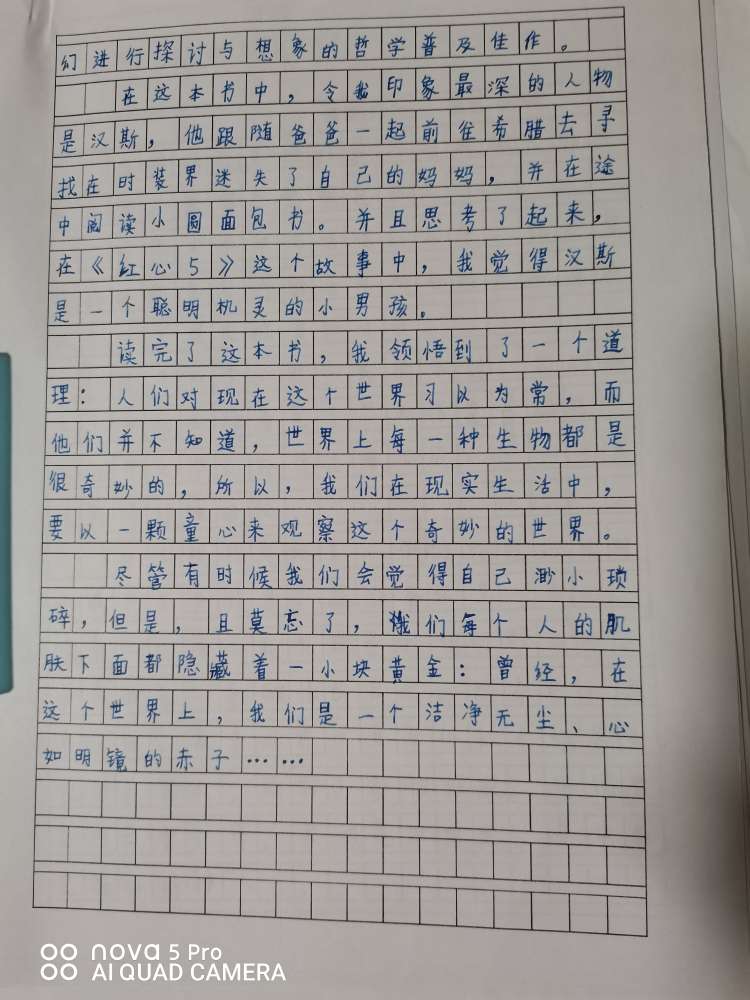 们进行探讨与想象的哲学普及佳作。
在这本书中，令我印象最深的人物
是汉斯，他跟随爸爸一起前往希腊去寻
找在时装界迷失了自己的妈妈，并在途
中阅读小圆面包书。并且思考了起来，
在《红心5》这个故事中，我觉得汉斯
是一个聪明机灵的小男孩。
读完了这本书，我领悟到了一个道
理：人们对现在这个世界习以为常，而
他们并不知道，世界上每一种生物都是
很奇妙的，所以，我们在现实生活中，
要以一颗童心来观察这个奇妙的世界。
尽管有时候我们会觉得自己渺小琐
碎，但是，且莫忘了，我们每个人的肌
肤下面都隐藏着一小块黄金：曾经，在
这个世界上，我们是一个洁净无尘、心
如明镜的赤子……
nova 5 Pro
AI QUAD CAMERA